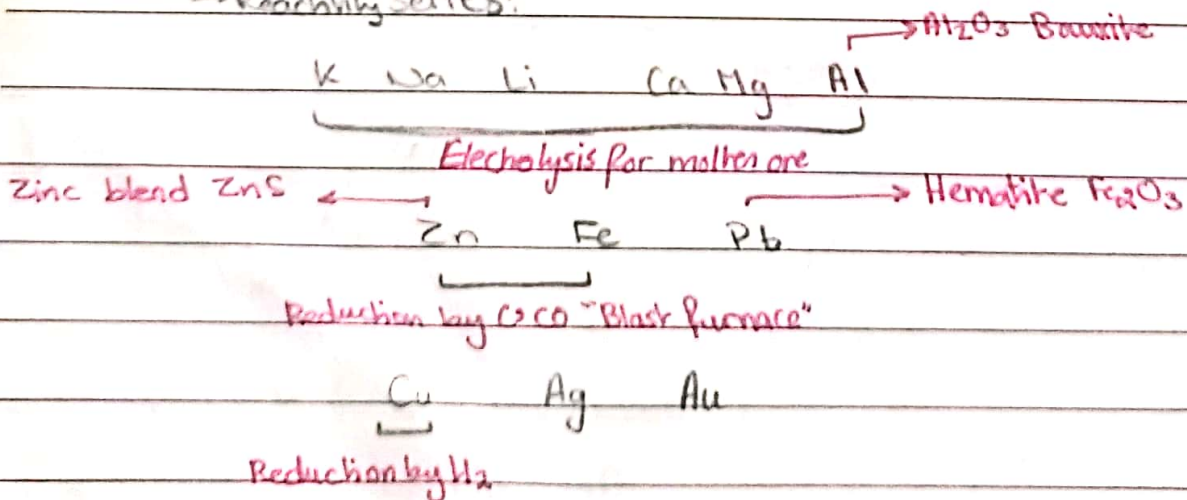 Reactivity series:
Al2O3 Bauxite
K Na Li Ca Mg Al
Elecholysis for molten ore
Zinc blend ZnS
Hematite Fe2O3
Zn Fe Pb
Reduction by C, CO "Blast furnace"
Cu Ag Au
Reduction by H2